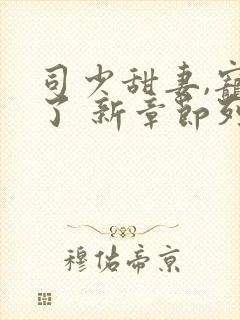 司少甜妻,宠
了 新章节列
穆佑帝京